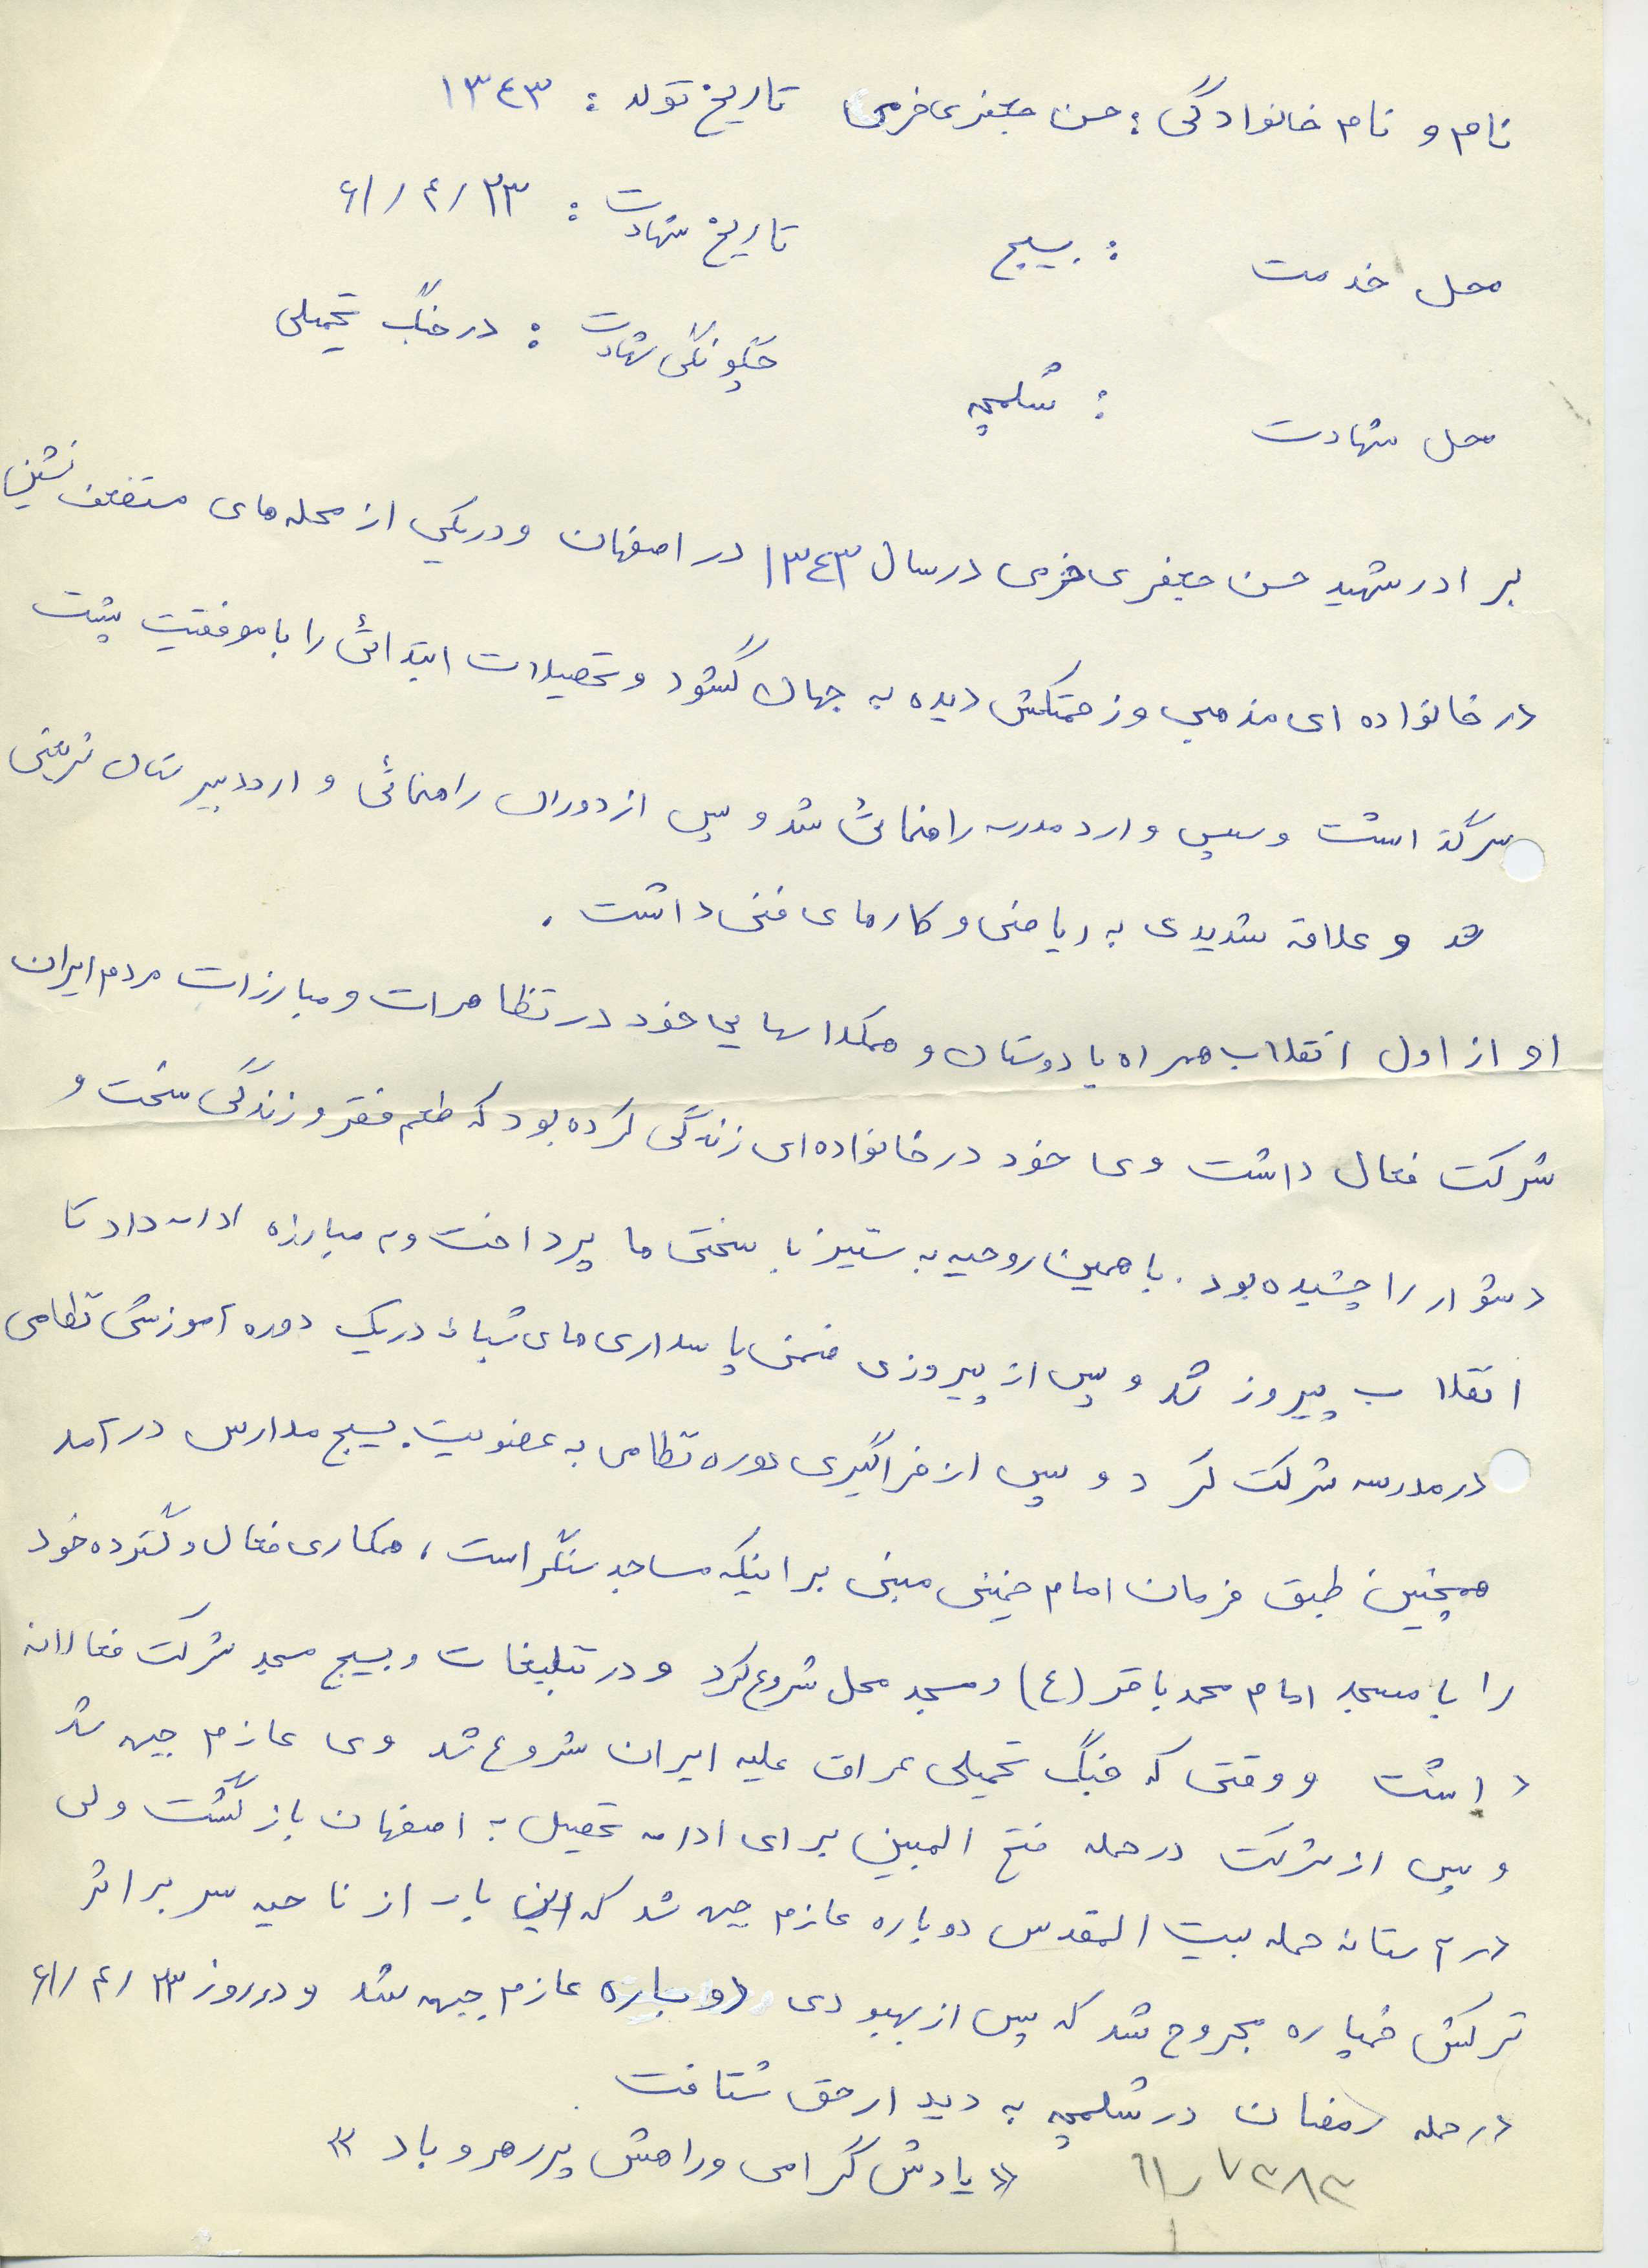 نام و نام خانوادگی : حسن جعفری خرمی تاریخ تولد : ۱۳۴۳
محل خدمت : بسیج تاریخ شهادت : ۶۱/۴/۲۳
محل شهادت : شلمچه چگونگی شهادت : در جنگ تحمیلی
برادر شهید حسن جعفری خرمی در سال ۱۳۴۳ در اصفهان و در یکی از محله های مستضعف نشین
در خانواده ای مذهبی و زحمتکش دیده به جهان گشود و تحصیلات ابتدائی را با موفقیت پشت
سر گذاشت و سپس وارد مدرسه راهنمائی شد و پس از دوران راهنمائی وارد دبیرستان
شد و علاقه شدیدی به ریاضی و کارهای فنی داشت .
او از اول انقلاب همراه با دوستان و همکلاسهایی خود در تظاهرات و مبارزات مردم ایران
شرکت فعال داشت وی خود در خانواده ای زندگی کرده بود که طعم فقر و زندگی سخت و
دشوار را چشیده بود . با همین روحیه به ستیز با سختی ها پرداخت و به مبارزه ادامه داد تا
انقلاب پیروز شد و پس از پیروزی ضمن پاسداری های شبانه در یک دوره آموزش نظامی
در مدرسه شرکت کرد و پس از فراگیری دوره نظامی به عضویت بسیج مدارس درآمد
همچنین طبق فرمان امام خمینی مبنی بر اینکه مساجد سنگر است ، همکاری فعال و گسترده خود
را با مسجد امام محمد باقر (ع) و مسجد محل شروع کرد و در تبلیغات و بسیج مسجد شرکت فعالانه
داشت و وقتی که جنگ تحمیلی عراق علیه ایران شروع شد وی عازم جبهه شد
و پس از شرکت در حمله فتح المبین برای ادامه تحصیل به اصفهان بازگشت ولی
در آستانه حمله بیت المقدس دوباره عازم جبهه شد که این بار از ناحیه سر بر اثر
ترکش خمپاره مجروح شد که پس از بهبودی دوباره عازم جبهه شد و در روز ۶۱/۴/۲۳
در حمله رمضان در شلمچه به دیدار حق شتافت
« یادش گرامی و راهش پر رهرو باد »